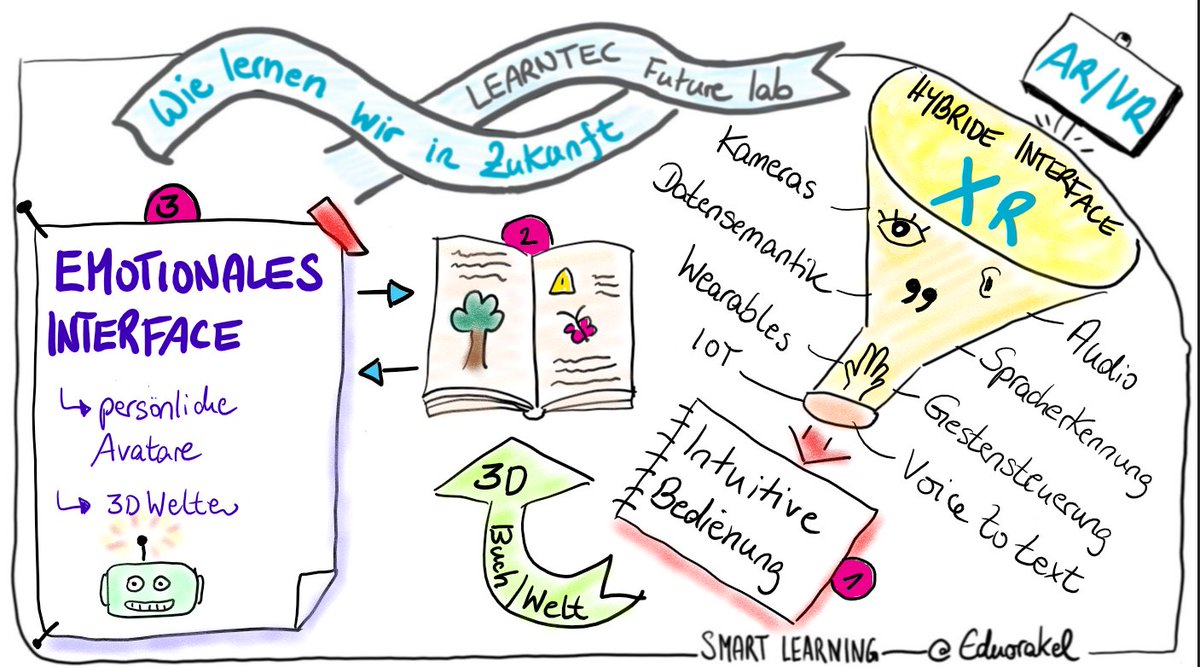 Wie lernen wir in Zukunft
LEARNTEC Future lab
AR/VR
HYBRIDE INTERFACE
XR
Kameras
Datensemantik
Wearables
IOT
Audio
Spracherkennung
Gestensteuerung
Voice to text
Intuitive
Bedienung
1
2
3D
Buch/Welt
3
EMOTIONALES
INTERFACE
persönliche
Avatare
3D Welten
SMART LEARNING @Eduorakel